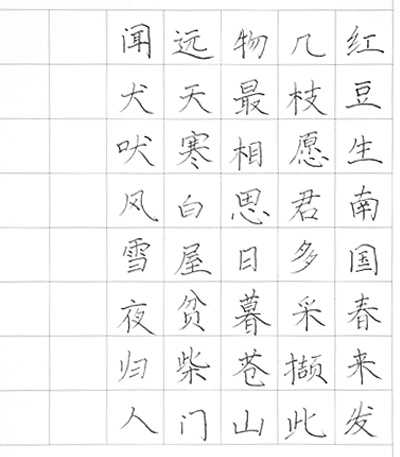 红豆生南国春来发
几枝愿君多采撷此
物最相思日暮苍山
远天寒白屋贫柴门
闻犬吠风雪夜归人